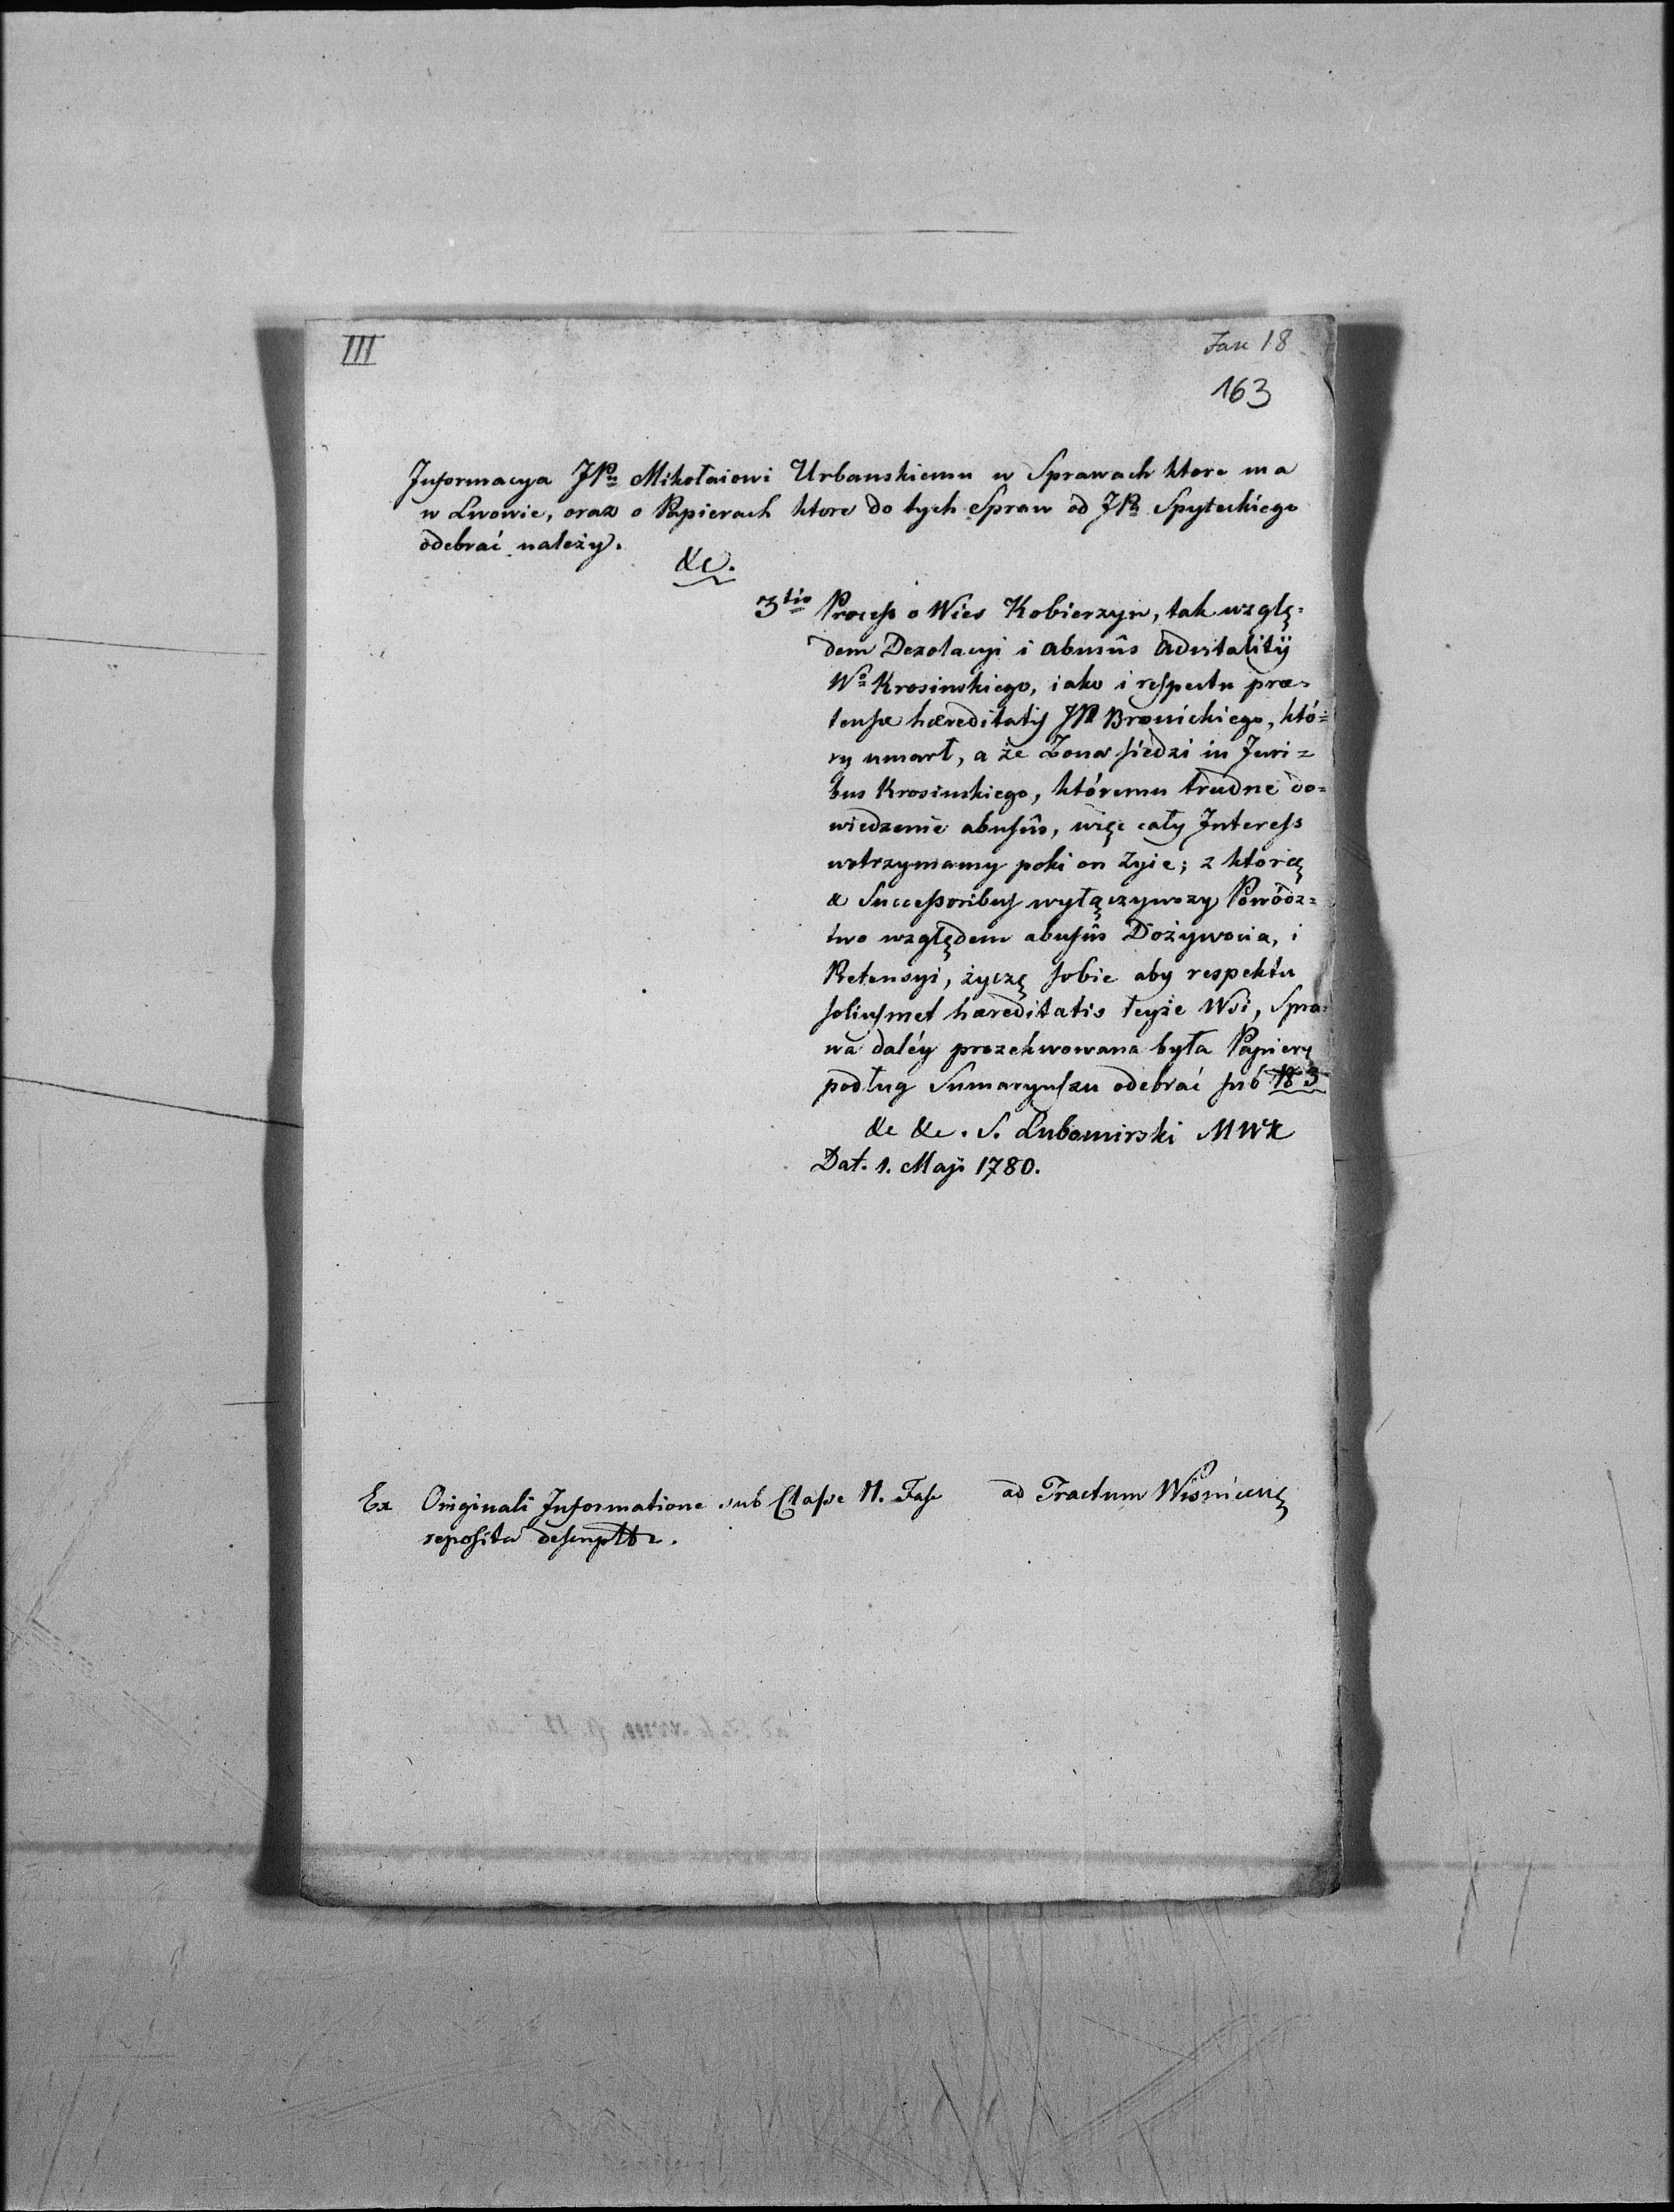 III
Fasc 18
163
Informacya JPu Mikołaiowi Urbanskiemu w Sprawach ktore ma
w Lwowie, oraz o Papierach ktore do tych Spraw od JPa Spyteckiego
odebrać należy.
&c.
3tio Process o Wies Kobierzyn, tak wzglę=
dem Dezolacyi i abusûs advitalitÿ
Wo Krosinskiego, iako i respectu præ=
tensæ hæreditatis JP Bronickiego, któ=
ry umarł, a że Zona siedzi in Juri=
bus Krosinskiego, któremu trudne do=
wiedzenie abusûs, więc cały Interess
wstrzymamy poki on żyie; z ktorą
a Successoribus wyłączywszy Powódz=
two względem abusûs Dożywocia, i
Retensyi, życzę sobie aby respektu
soliusmet hæreditatis teyże Wsi, Spra=
wa daléy prozekwowana była Papiery
podług Sumaryuszu odebrać sub N 3
&c &c. S. Lubomirski MWK
Dat. 1. Maji 1780.
Ex Originali Informatione sub Classe II. Fasc ad Tractum Wisnicens
reposita